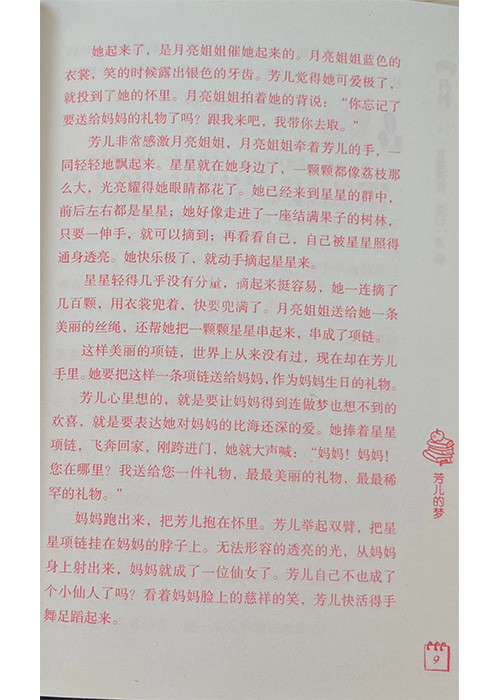 她起来了，是月亮姐姐催她起来的。月亮姐姐蓝色的
衣裳，笑的时候露出银色的牙齿。芳儿觉得她可爱极了，
就投到了她的怀里。月亮姐姐拍着她的背说：“你忘记了
要送给妈妈的礼物了吗？跟我来吧，我带你去取。”
芳儿非常感激月亮姐姐，月亮姐姐牵着芳儿的手，一
同轻轻地飘起来。星星就在她身边了，一颗颗都像荔枝那
么大，光亮耀得她眼睛都花了。她已经来到星星的群中，
前后左右都是星星；她好像走进了一座结满果子的树林，
只要一伸手，就可以摘到；再看看自己，自己被星星照得
通身透亮。她快乐极了，就动手摘起星星来。
星星轻得几乎没有分量，摘起来挺容易，她一连摘了
几百颗，用衣裳兜着，快要兜满了。月亮姐姐送给她一条
美丽的丝绳，还帮她把一颗颗星星串起来，串成了项链。
这样美丽的项链，世界上从来没有过，现在却在芳儿
手里。她要把这样一条项链送给妈妈，作为妈妈生日的礼物。
芳儿心里想的，就是要让妈妈得到连做梦也想不到的
欢喜，就是要表达她对妈妈的比海还深的爱。她捧着星星
项链，飞奔回家，刚跨进门，她就大声喊：“妈妈！妈妈！
您在哪里？我送给您一件礼物，最最美丽的礼物，最最稀
罕的礼物。”
妈妈跑出来，把芳儿抱在怀里。芳儿举起双臂，把星
星项链挂在妈妈的脖子上。无法形容的透亮的光，从妈妈
身上射出来，妈妈就成了一位仙女了。芳儿自己不也成了
个小仙人了吗？看着妈妈脸上的慈祥的笑，芳儿快活得手
舞足蹈起来。
芳儿的梦
9